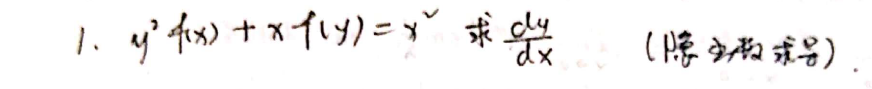 1. y² f(x) + x f(y) = x² 求 dy/dx (隐函数求导).